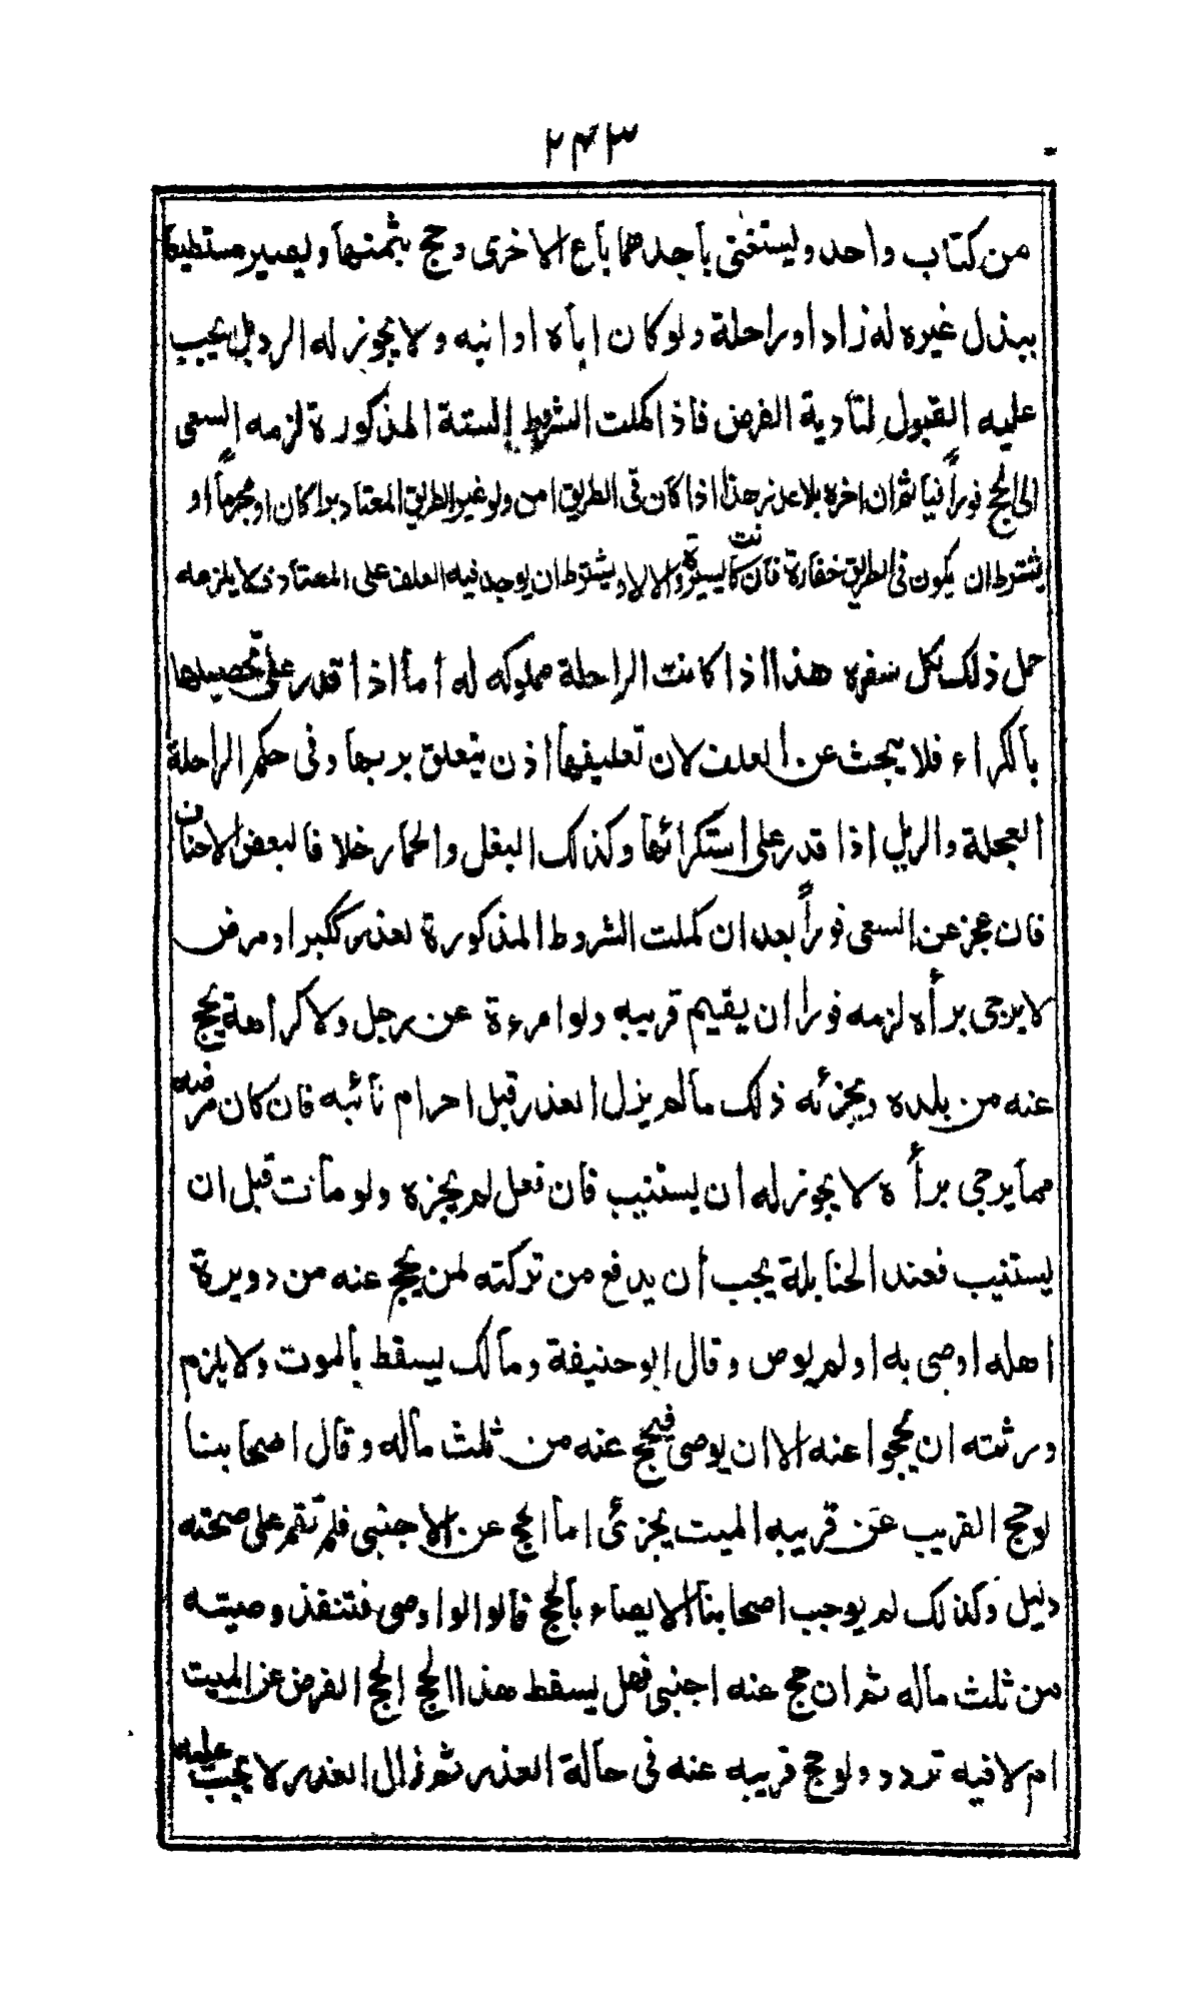 ٢٤٣
من كتاب واحد وليستغنى باحدهما باع الاخرى وحج بثمنها ويصير مستطيعا
ببذل غيره له زادا وراحلة ولو كان اباه او ابنه ولا يجوز له الرد بل يجب
عليه القبول لتأدية الفرض فاذا كملت الشروط الستة المذكورة لزمه السعى
الى الحج فوراً فيأثم ان اخره بلا عذر هذا اذا كان فى الطريق امن ولو غير الطريق المعتاد برا كان او بحرا او
يشترط ان يكون فى الطريق خفارة فان كانت يسيرة والا لا ويشترط ان يوجد فيه العلف على المعتاد فلا يلزمه
حمل ذلك لكل سفره هذا اذا كانت الراحلة مملوكه له أما اذا قدر على تحصيلها
بالكراء فلا يبحث عن العلف لان تعليفها اذن يتعلق بربها وفى حكم الراحلة
العجلة والريل اذا قدر على استكرائها وكذلك البغل والحمار خلافا لبعض الاحناف
فان عجز عن السعى فوراً بعد ان كملت الشروط المذكورة لعذر ككبر او مرض
لا يرجى برأه لزمه فورا ان يقيم قريبه ولو امرءة عن رجل ولا كراهة يحج
عنه من بلده ويجزئه ذلك مالم يزل العذر قبل احرام نائبه فان كان مرضه
مما يرجى برأه لا يجوز له ان يستنيب فان فعل لم يجزه ولو مات قبل ان
يستنيب فعند الحنابلة يجب أن يدفع من تركته لمن يحج عنه من دويرة
اهله اوصى به او لم يوص وقال ابو حنيفة ومالك يسقط بالموت ولا يلزم
ورثته ان يحجوا عنه الا ان يوصى فيحج عنه من ثلث ماله وقال اصحابنا
لو حج القريب عن قريبه الميت يجزئ اما الحج عن الاجنبى فلم تقم على صحته
دليل وكذلك لم يوجب اصحابنا الايصاء بالحج قالوا لو اوصى فتنفذ وصيته
من ثلث ماله ثم ان حج عنه اجنبى فهل يسقط هذا الحج الحج الفرض عن الميت
ام لا فيه تردد ولو حج قريبه عنه فى حالة العذر ثم زال العذر لا يجب عليه